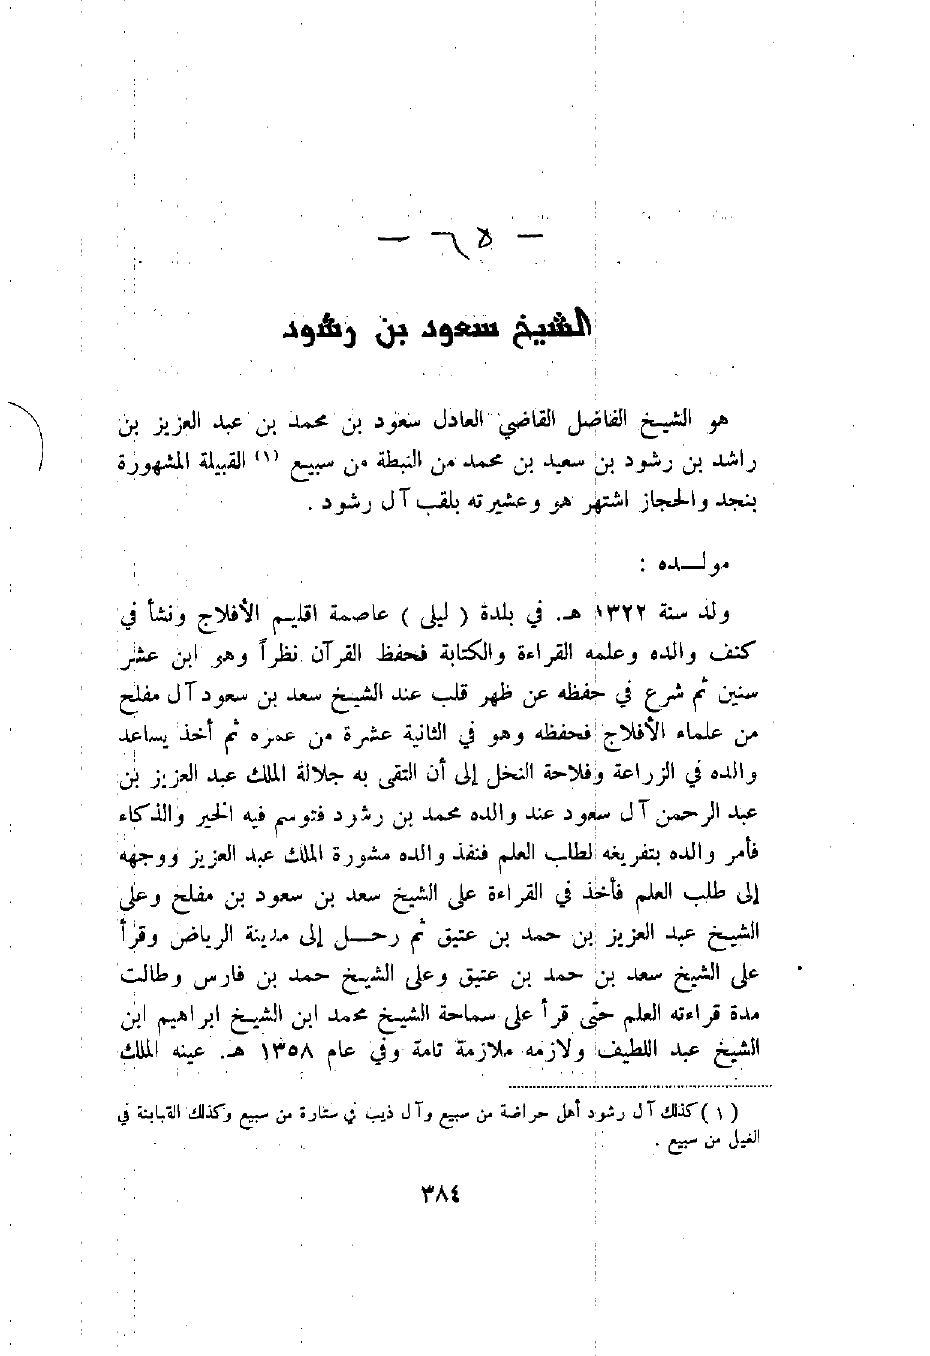 - ٦٥ -
الشيخ سعود بن رشود
هو الشيخ الفاضل القاضي العادل سعود بن محمد بن عبد العزيز بن
راشد بن رشود بن سعيد بن محمد من النبطة من سبيع (١) القبيلة المشهورة
بنجد والحجاز اشتهر هو وعشيرته بلقب آل رشود .
مولــده :
ولد سنة ١٣٢٢ هـ. في بلدة ( ليلى ) عاصمة اقليم الأفلاج ونشأ في
كنف والده وعلمه القراءة والكتابة فحفظ القرآن نظراً وهو ابن عشر
سنين ثم شرع في حفظه عن ظهر قلب عند الشيخ سعد بن سعود آل مفلح
من علماء الأفلاج فحفظه وهو في الثانية عشرة من عمره ثم أخذ يساعد
والده في الزراعة وفلاحة النخل إلى أن التقى به جلالة الملك عبد العزيز بن
عبد الرحمن آل سعود عند والده محمد بن رشود فتوسم فيه الخير والذكاء
فأمر والده بتفريغه لطلب العلم فنفذ والده مشورة الملك عبد العزيز ووجهه
إلى طلب العلم فأخذ في القراءة على الشيخ سعد بن سعود بن مفلح وعلى
الشيخ عبد العزيز بن حمد بن عتيق ثم رحــل إلى مدينة الرياض وقرأ
على الشيخ سعد بن حمد بن عتيق وعلى الشيخ حمد بن فارس وطالت
مدة قراءته العلم حتى قرأ على سماحة الشيخ محمد ابن الشيخ ابراهيم ابن
الشيخ عبد اللطيف ولازمه ملازمة تامة وفي عام ١٣٥٨ هـ. عينه الملك
( ١ ) كذلك آل رشود أهل حراضة من سبيع وآل ذيب في ستارة من سبيع وكذلك القبابنة في
الغيل من سبيع .
٣٨٤